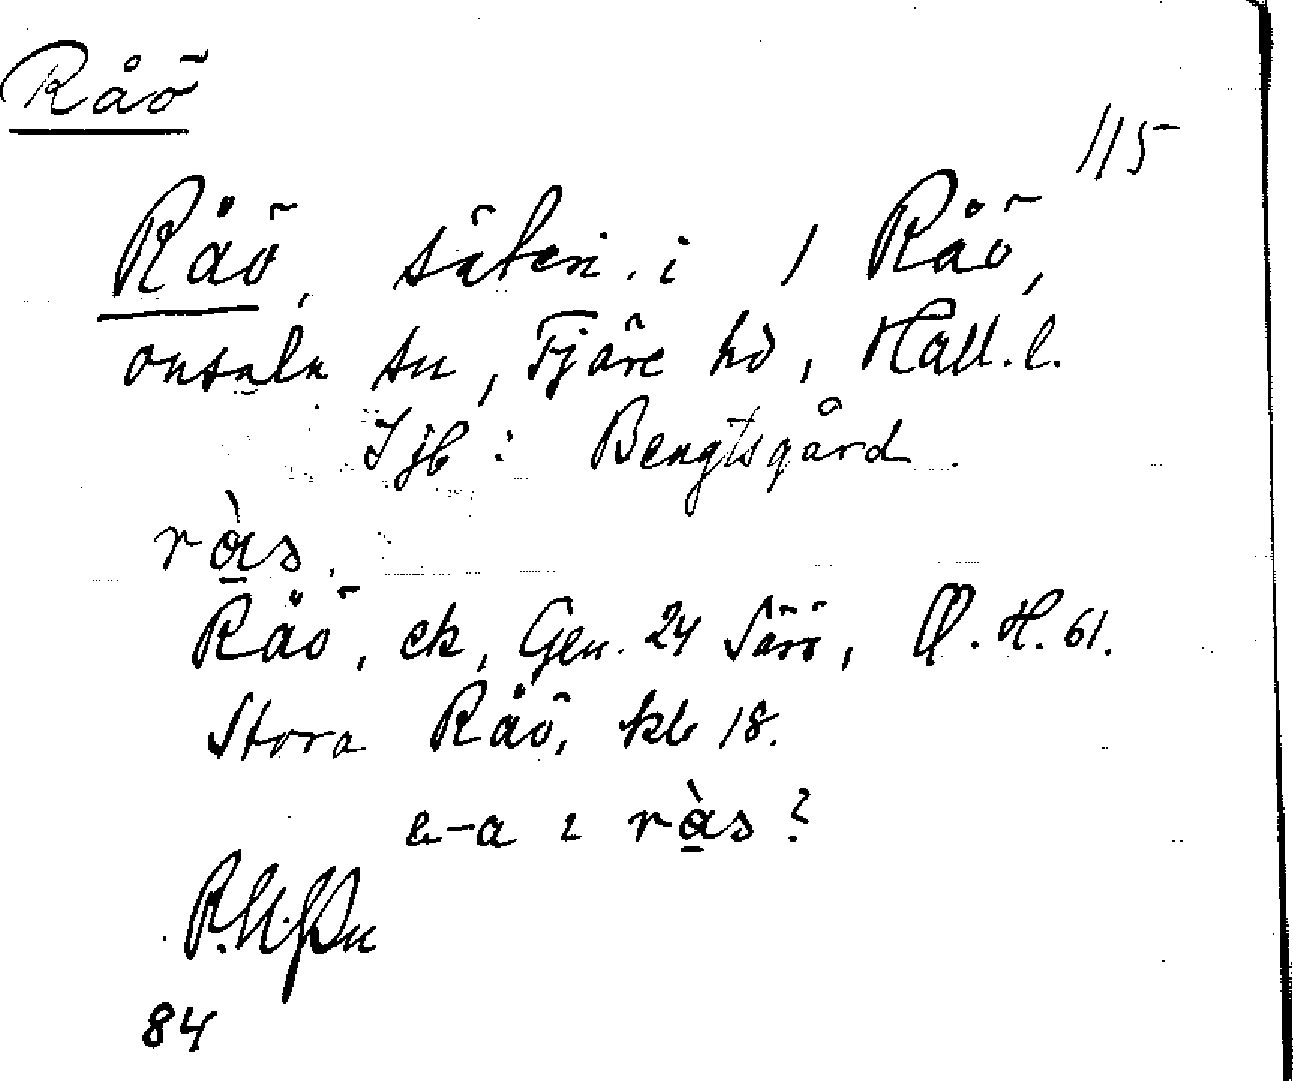 Råö
115
Råö, säteri. i 1 Råö,
Onsala sn, Fjäre hd, Hall. l.
Ijb: Bengtsgård
ràs.
Råö, ek, Gen. 24 Särö, H. 61.
Stora Råö, kb 18.
a ràs?
84